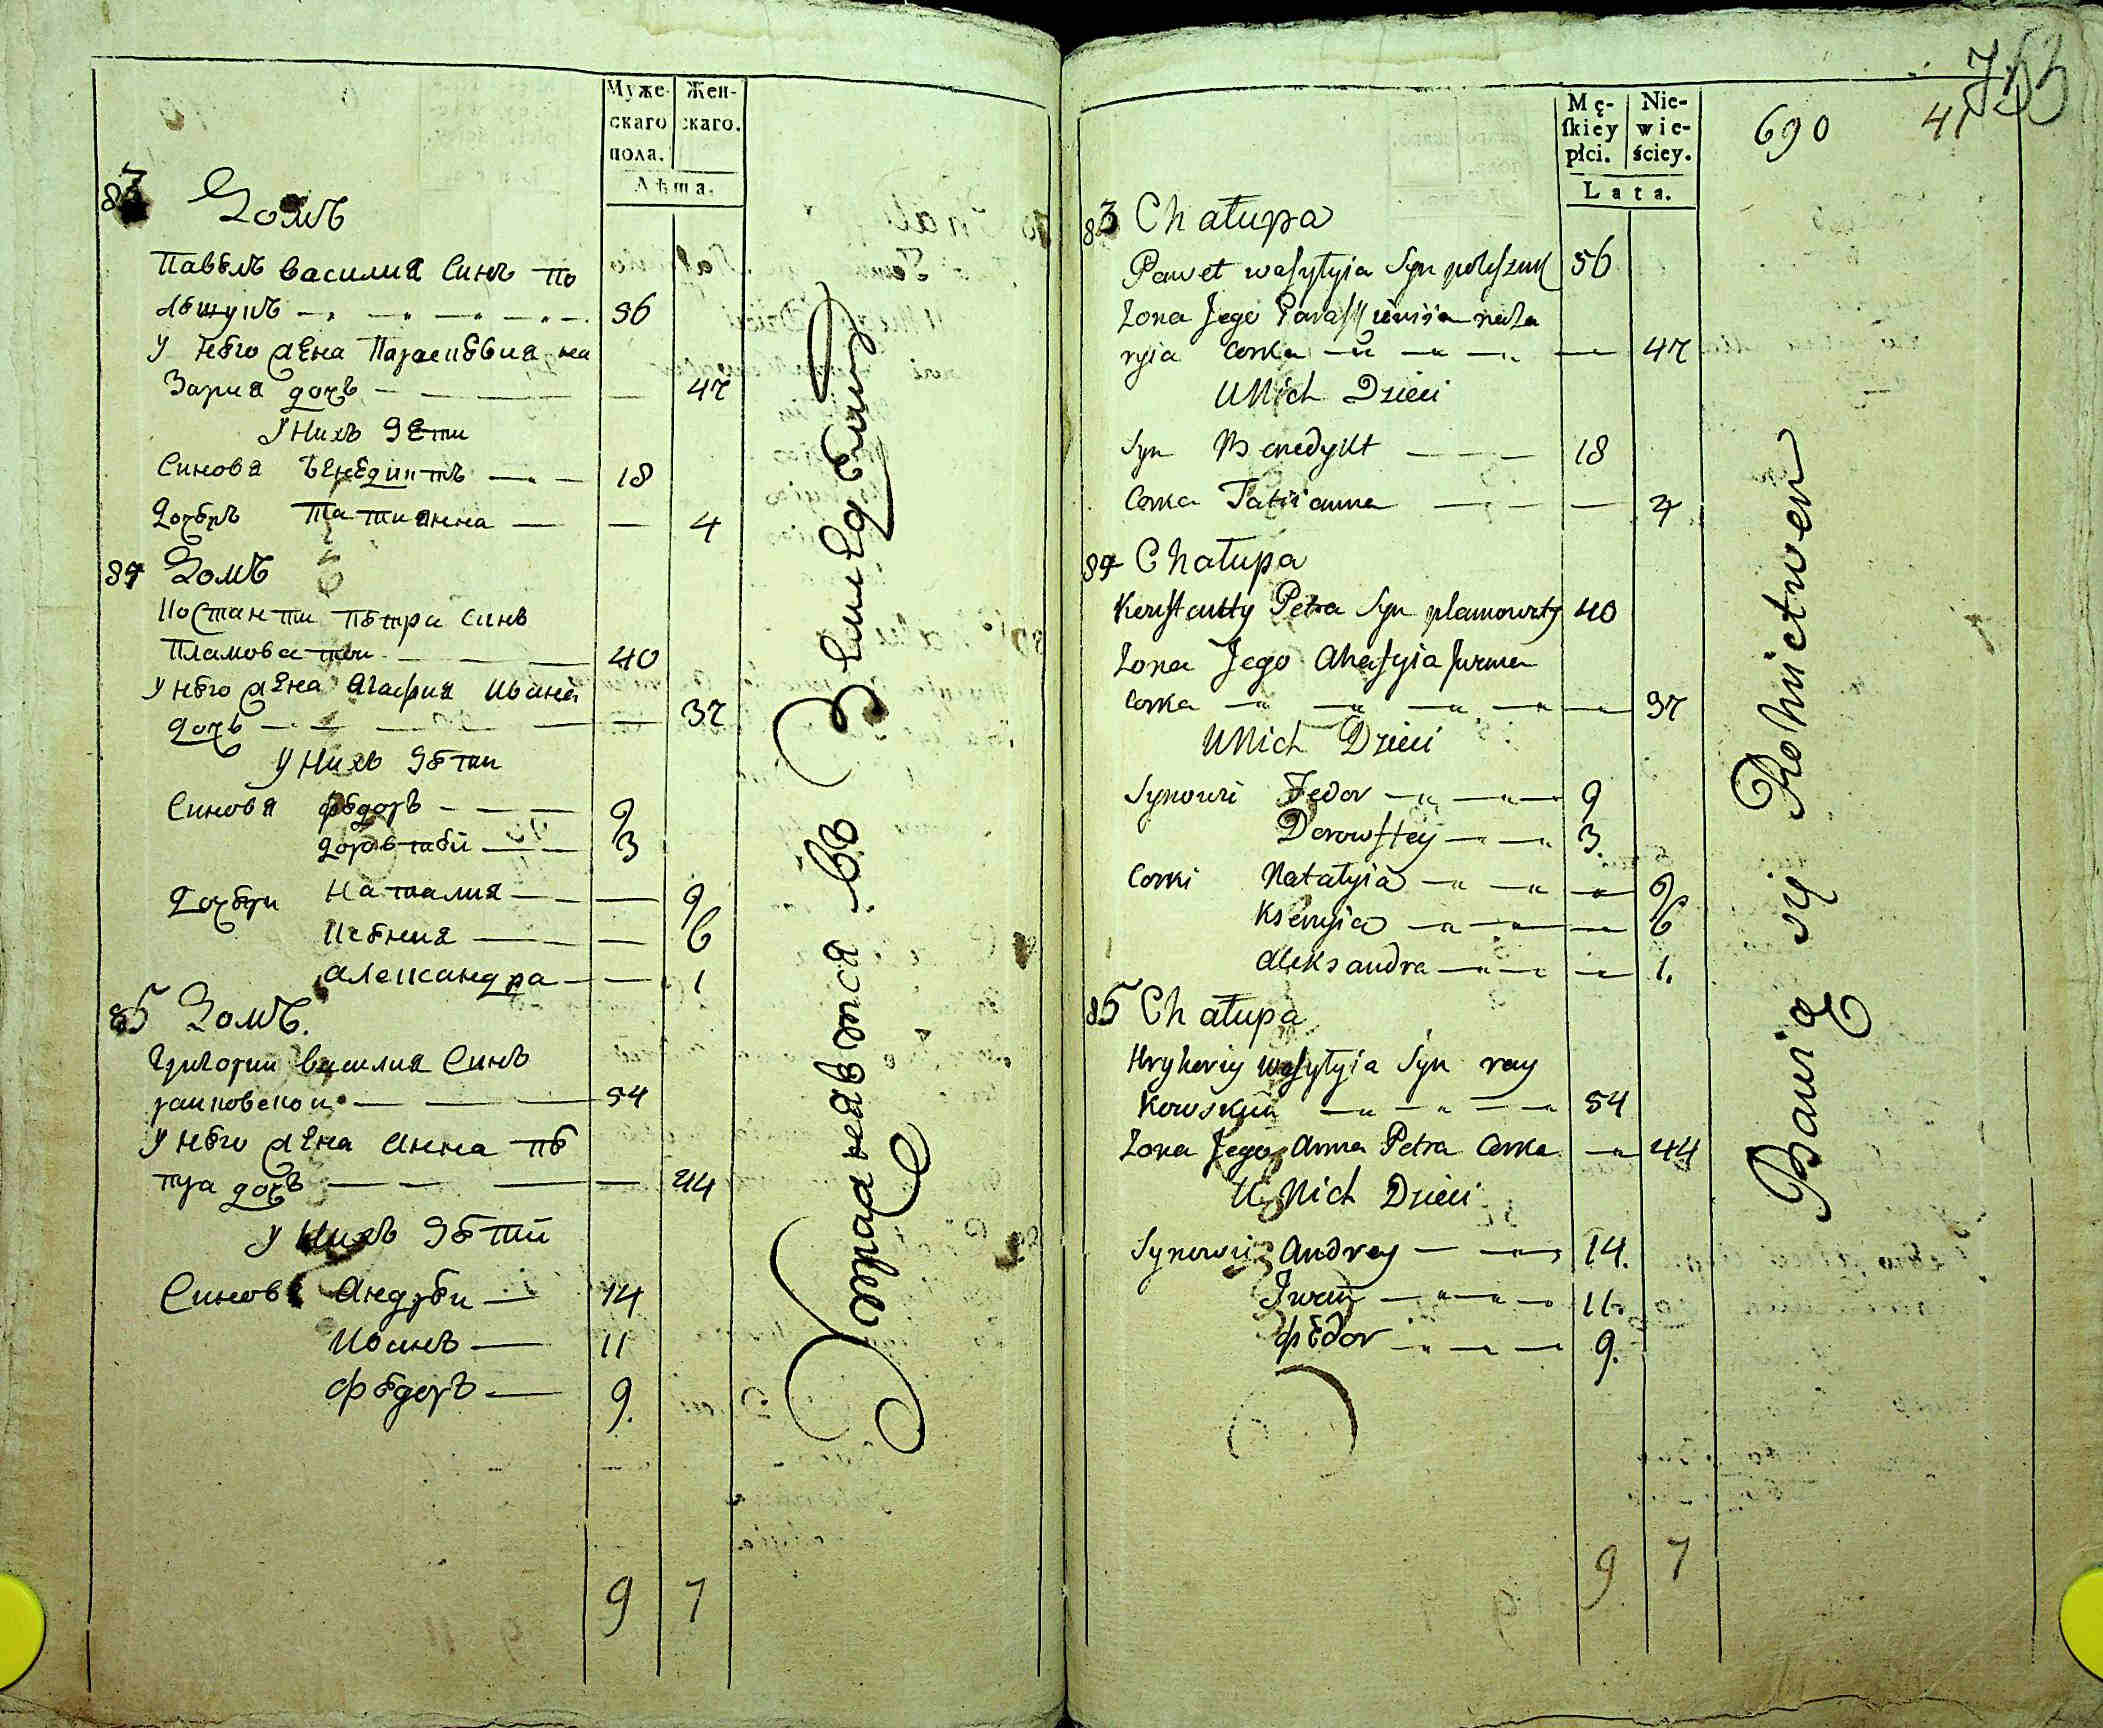 Муже- Жен-
скаго скаго.
пола.
Лѣта.
83 Домъ
Павелъ василия Синъ По
лещукъ 56
У него жена Параскевия на
зария дочъ 47
У Нихъ Дети
Синовя Бенедиктъ 18
Дочеръ Татианна 4
84 Домъ
Костанти Петра Синъ
Пламовати 40
У него жена Агафия Ивана
дочъ 37
У Нихъ Дети
Синовя Федоръ 9
Доровтей 3
Дочери Наталия 9
Ксения 6
Александра 1
85 Домъ.
Григории василия Синъ
раиковскои 54
У него жена Анна Пе
тра дочъ 44
У Нихъ Дети
Синовя Андреи 14
Иванъ 11
Федоръ 9.
9 7
Упражневаются въ Земледелии
753
690 41
Mę- Nie-
skiey wie-
płci. ściey.
Lata.
83 Chałupa
Paweł wasylyia Syn poleszuk 56
Zona Jego Paraskiewija naza
ryia Corka 47
U Nich Dzieci
Syn Benedykt 18
Corka Tatiianna 4
84 Chałupa
Konstanty Petra Syn plamowaty 40
Zona Jego Ahafyia Iwana
Corka 37
U Nich Dzieci
Synowi Fedor 9
Dorowftey 3.
Corki Natalyia 9
Ksenyia 6
Aleksandra 1.
85 Chałupa
Hryhoriy wasylyia Syn ray
kowskiy 54
Zona Jego Anna Petra Corka 44
U Nich Dzieci
Synowi Andrey 14.
Iwan 11.
фEdor 9.
9 7
Bawią się Rolnictwem